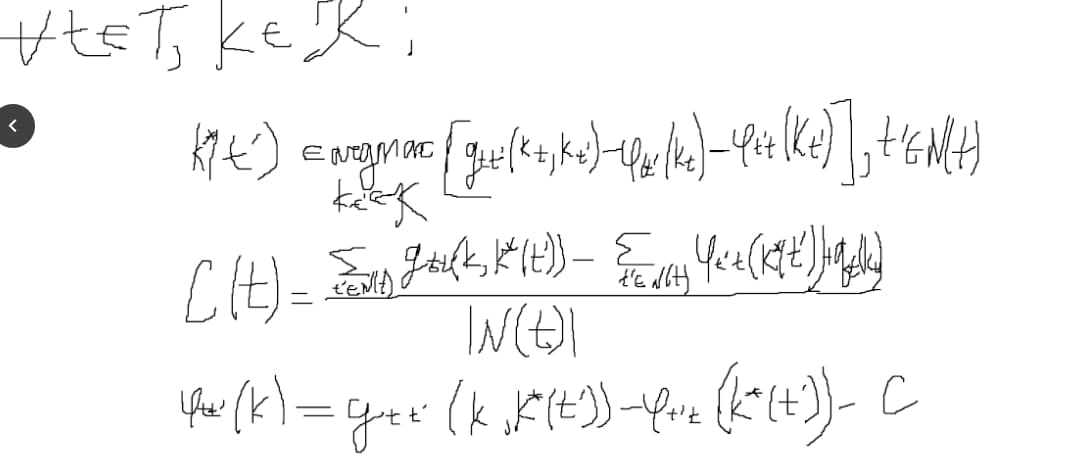 ∀t∈T, k∈K:
k*(t') ∈ argmax [g_tt'(k_t, k_t') - φ_tt'(k_t) - φ_t't(k_t')], t'∈N(t)
k_t'∈K
C(t) = (Σ_{t'∈N(t)} g_tt'(k, k*(t')) - Σ_{t'∈N(t)} φ_t't(k*(t')) + q_t(k_t))
|N(t)|
φ_tt'(k) = g_tt'(k, k*(t')) - φ_t't(k*(t')) - C